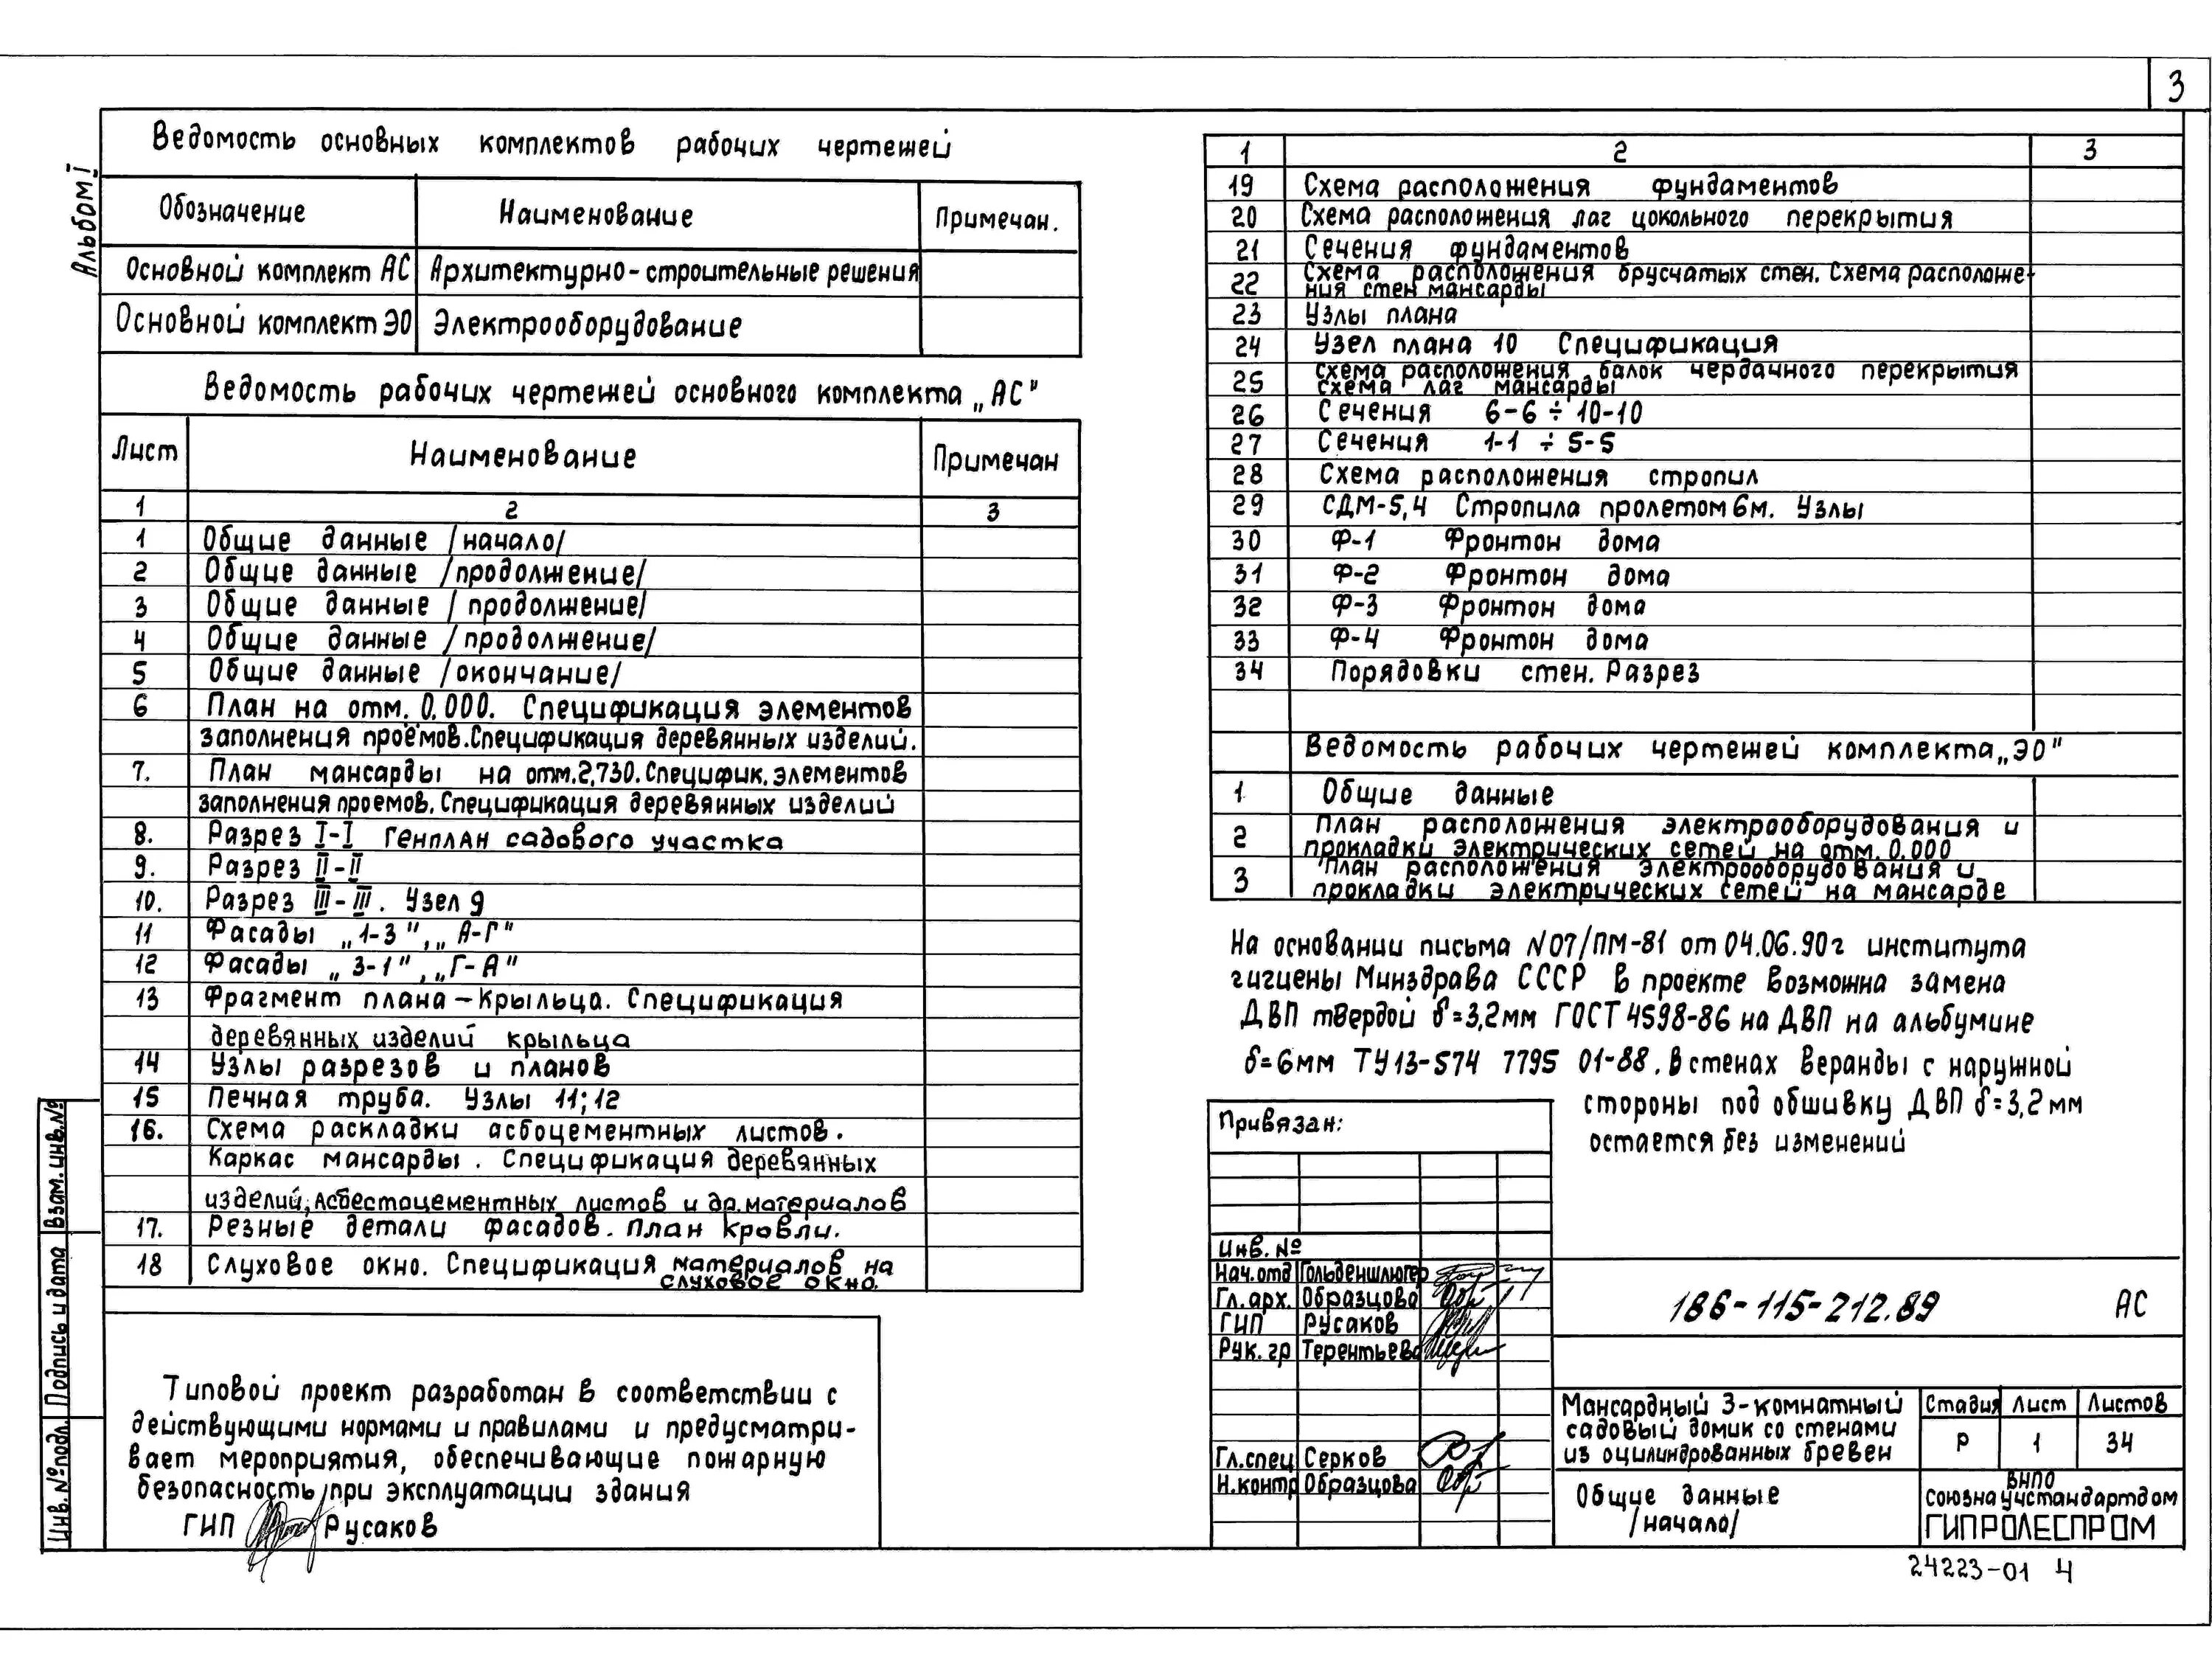 3
Альбом I
Ведомость основных комплектов рабочих чертежей
Обозначение Наименование Примечан.
Основной комплект АС Архитектурно-строительные решения
Основной комплект ЭО Электрооборудование
Ведомость рабочих чертежей основного комплекта „АС"
Лист Наименование Примечан
1 2 3
1 Общие данные /начало/
2 Общие данные /продолжение/
3 Общие данные /продолжение/
4 Общие данные /продолжение/
5 Общие данные /окончание/
6 План на отм. 0.000. Спецификация элементов
заполнения проёмов. Спецификация деревянных изделий.
7. План мансарды на отм. 2,730. Специфик. элементов
заполнения проемов. Спецификация деревянных изделий
8. Разрез I-I Генплан садового участка
9. Разрез II-II
10. Разрез III-III. Узел 9
11 Фасады „1-3", „А-Г"
12 Фасады „3-1", „Г-А"
13 Фрагмент плана - Крыльца. Спецификация
деревянных изделий крыльца
14 Узлы разрезов и планов
15 Печная труба. Узлы 11; 12
16. Схема раскладки асбоцементных листов.
Каркас мансарды. Спецификация деревянных
изделий, асбестоцементных листов и др. материалов
17. Резные детали фасадов. План кровли.
18 Слуховое окно. Спецификация материалов на
слуховое окно.
Типовой проект разработан в соответствии с
действующими нормами и правилами и предусматри-
вает мероприятия, обеспечивающие пожарную
безопасность при эксплуатации здания
ГИП Русаков
Взам. инв. №
Подпись и дата
Инв. № подл.
1 2 3
19 Схема расположения фундаментов
20 Схема расположения лаг цокольного перекрытия
21 Сечения фундаментов
22 Схема расположения брусчатых стен. Схема расположе-
ния стен мансарды
23 Узлы плана
24 Узел плана 10 Спецификация
25 Схема расположения балок чердачного перекрытия
схема лаг мансарды
26 Сечения 6-6 ÷ 10-10
27 Сечения 1-1 ÷ 5-5
28 Схема расположения стропил
29 СДМ-5,4 Стропила пролетом 6м. Узлы
30 Ф-1 Фронтон дома
31 Ф-2 Фронтон дома
32 Ф-3 Фронтон дома
33 Ф-4 Фронтон дома
34 Порядовки стен. Разрез
Ведомость рабочих чертежей комплекта „ЭО"
1 Общие данные
2 План расположения электрооборудования и
прокладки электрических сетей на отм. 0.000
3 План расположения электрооборудования и
прокладки электрических сетей на мансарде
На основании письма N07/ПМ-81 от 04.06.90г института
гигиены Минздрава СССР в проекте возможна замена
ДВП твердой δ=3,2мм ГОСТ 4598-86 на ДВП на альбумине
δ=6мм ТУ13-574 7795 01-88. В стенах веранды с наружной
стороны под обшивку ДВП δ=3,2мм
остается без изменений
Привязан:
Инв. №
Нач. отд Гольденшлюгер
Гл. арх. Образцова
ГИП Русаков
Рук. гр Терентьева
Гл. спец Серков
Н. контр Образцова
186-115-212.89 АС
Мансардный 3-комнатный
садовый домик со стенами
из оцилиндрованных бревен
Стадия Лист Листов
Р 1 34
Общие данные
/начало/
ВНПО
Союзнаучстандартдом
ГИПРОЛЕСПРОМ
24223-01 4